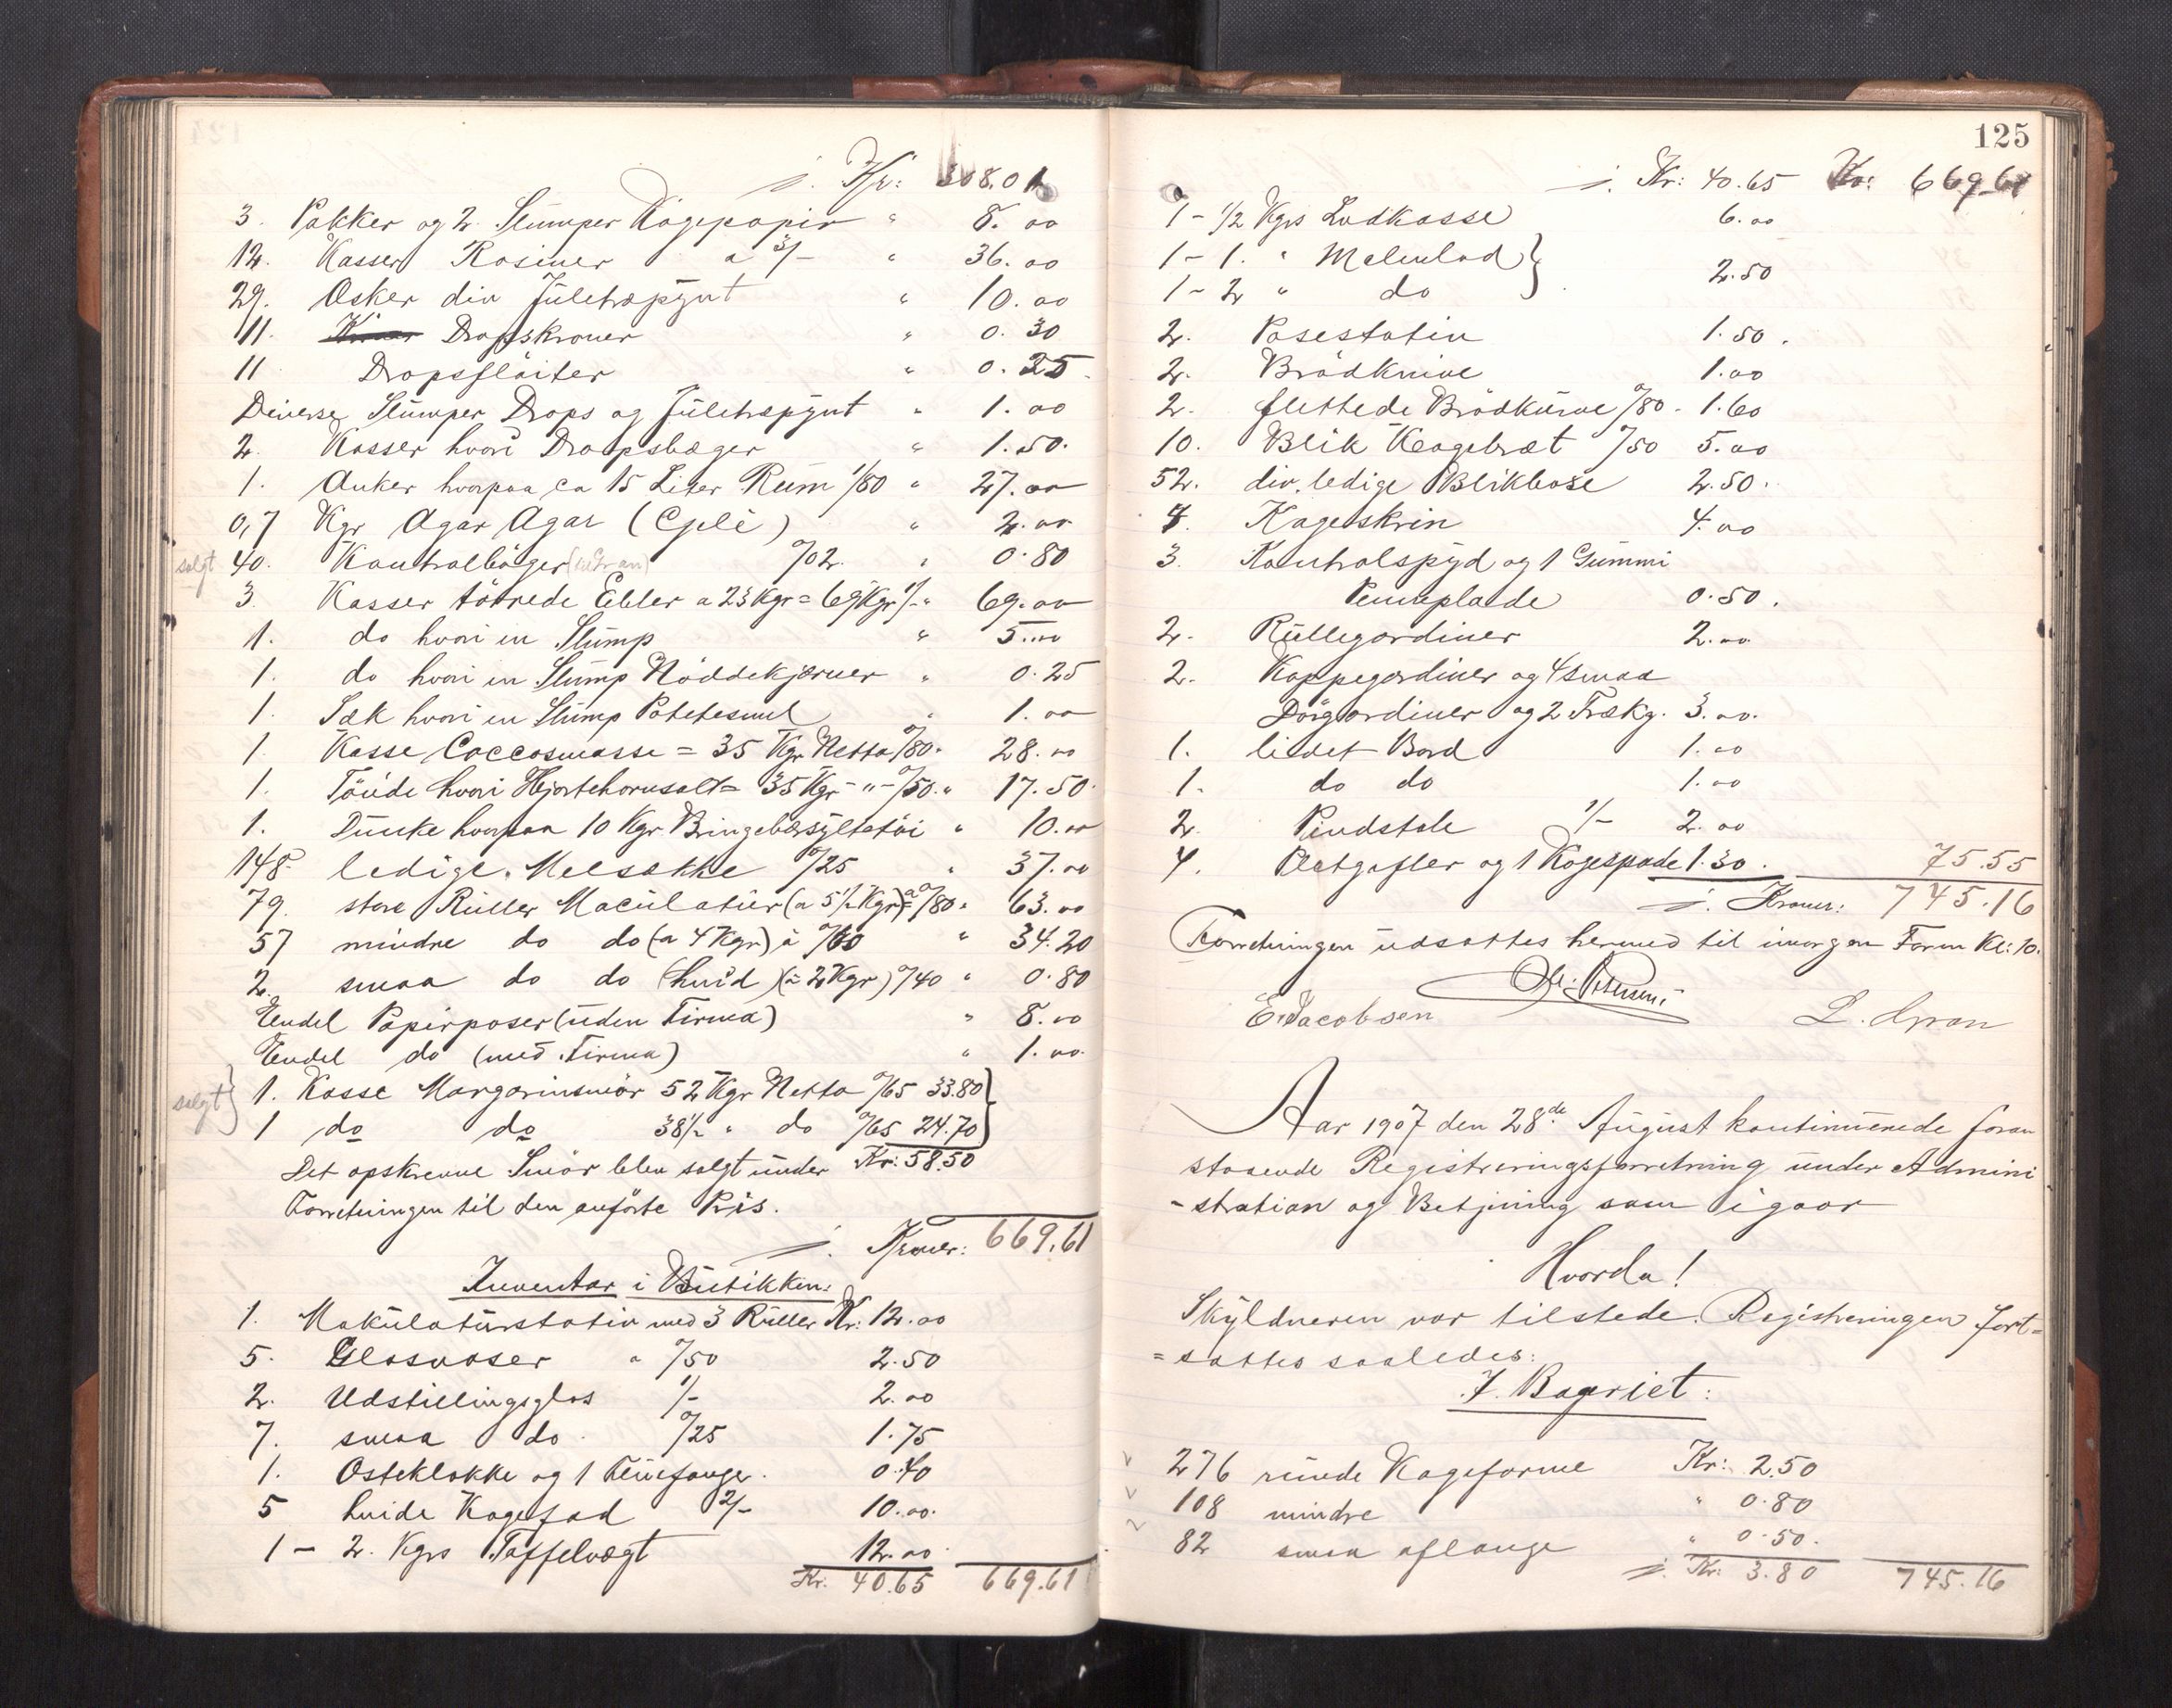 Kr: 308.01
3. Pakker og 2 Stumper Kagepapir " 8.00
12. Kasser Rosiner a 3/- " 36.00
29. Æsker div Juletræpynt " 10.00
11. Dropskroner " 0.30
11 Dropsflöiter " 0.25
Diverse Stumper Drops og Juletræpynt " 1.00
2. Kasser hvori Dropsbæger " 1.50.
1. Anker hvorpaa ca 15 Liter Rum 1/80 " 27.00
0,7 Kgr Agar Agar (Gelé) " 2.00
solgt 40. Kontrolbøger 0/02. " 0.80
3. Kasser törrede Ebler a 23 Kgr = 69 Kgr 1/- " 69.00
1. do hvori en Stump " 5.00
1. do hvori en Stump Nöddekjærner " 0.25
1. Sæk hvori en Stump Potetesmel " 1.00
1. Kasse Coccosmasse = 35 Kgr Netto 0/80 " 28.00
1. Tönde hvori Hjortehornsalt = 35 Kgr - " - 0/50 " 17.50.
1. Dunke hvorpaa 10 Kgr Bringebærsyltetöi " 10.00
148. ledige Melsække 0/25 " 37.00
79. store Ruller Maculatur (a 5½ Kgr) a 0/80 " 63.00
57 mindre do do (a 4 Kgr) à 0/60 " 34.20
2. smaa do do (hvid) (a 2 Kgr) 0/40 " 0.80
Endel Papirposer (uden Firma) " 8.00
Endel do (med Firma) " 1.00.
solgt } 1. Kasse Margarinsmör 52 Kgr Netto 0/65 33.80 }
1 do do 38½ " do 0/65 24.70 }
Det opskrevne Smör blev solgt under Kr: 58.50
Forretningen til den anförte Pris.
Kroner: 669.61
Inventar i Butikken:
1. Makulaturstativ med 3 Ruller Kr: 12.00
5. Glasvaser " 0/50 2.50
2. Udstillingsglas 1/- 2.00
7. smaa do. 0/25 1.75
1. Osteklokke og 1 Fluefanger. 0.40
5 hvide Kagefad 2/- 10.00.
1 - 2. Kgrs Taffelvægt 12.00
Kr: 40.65 669.61
125
Kr: 40.65 Kr: 669.61
1 - ½ Kgrs Lodkasse 6.00
1 - 1. " Metallod }
1 - 2 " do } 2.50
2. Posestativ 1.50.
2. Brödknive 1.00
2. flettede Brödkurve 0/80. 1.60
10. Blik Kagebræt 0/50 5.00
52. div. ledige Blikbose 2.50.
8. Kageskrin 4.00
3. Kontrolspyd og 1 Gummi
Penneplade 0.50.
2. Rullegardiner 2.00
2. Kappegardiner og 4 smaa
Dörgardiner og 2 Trækg. 3.00.
1. lidet Bord 1.00
1. do do 1.00
2. Pindstole 1/- 2.00
4. Pletgafler og 1 Kagespade 1.30. 75.55
Kroner: 745.16
Forretningen udsattes hermed til imorgen Form Kl: 10.
E. Jacobsen L. Gran
Aar 1907 den 28de August kontinuerede foran
staaende Registreringsforretning under Admini
-stration og Betjening som igaar
Hvorda!
Skyldneren var tilstede. Registreringen fort=
=sattes saaledes:
I. Bageriet:
276 runde Kageforme Kr: 2.50
108 mindre " 0.80
82 smaa aflange " 0.50.
Kr: 3.80 745.16